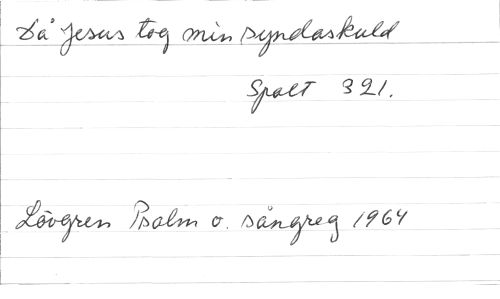 Då Jesus tog min syndaskuld
Spalt 321.
Lövgren Psalm o. sångreg 1964